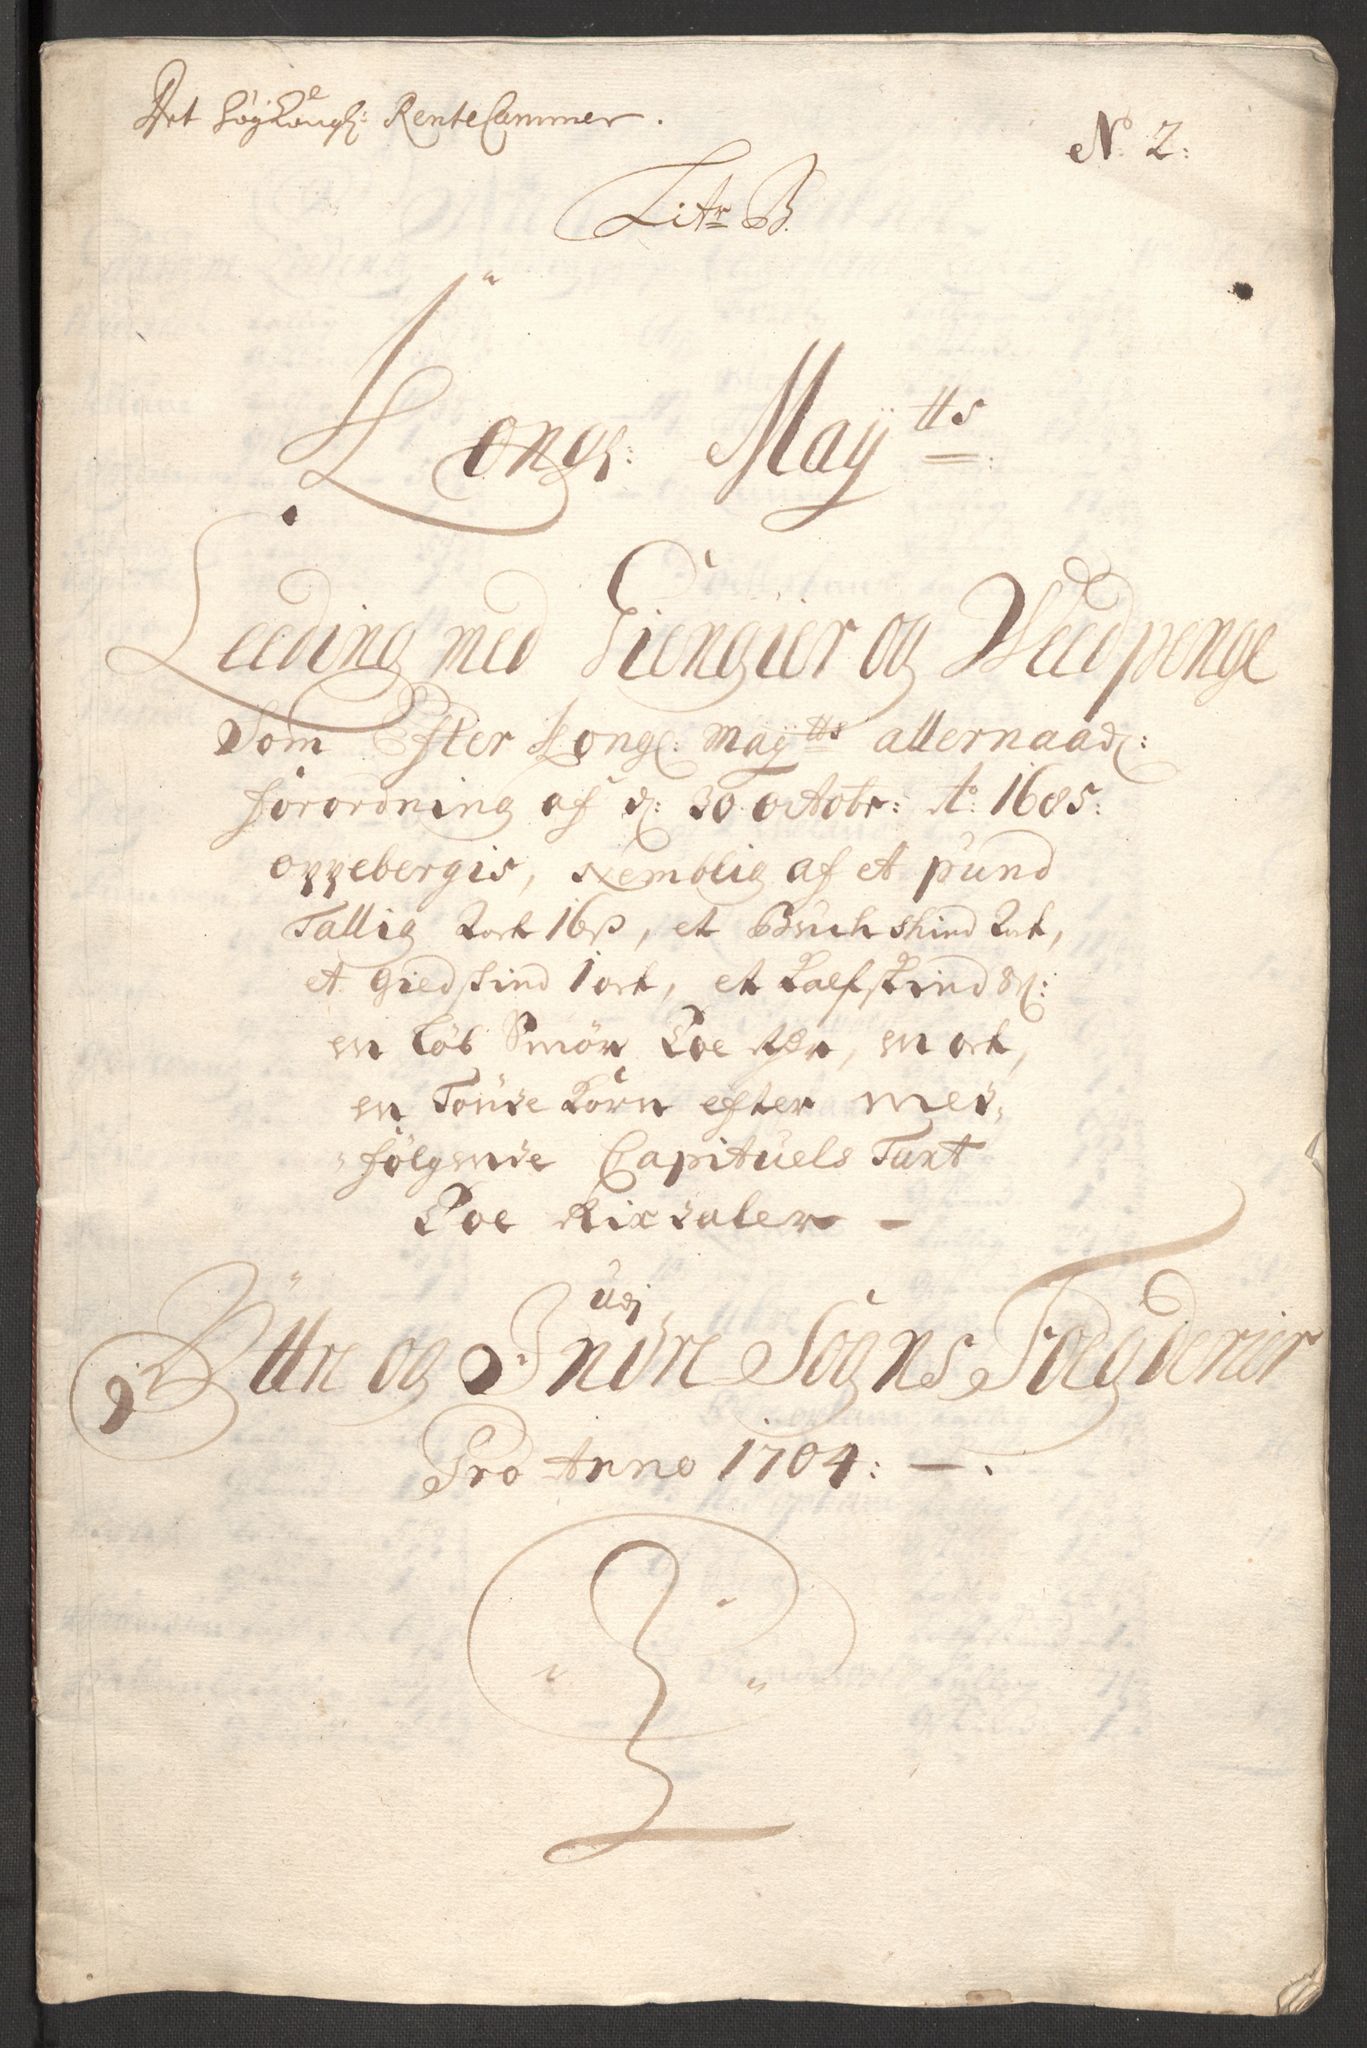 Det höyKongl: RenteCammer.
No. 2:
Litr B.
Kongl: Maytts
Leeding med Giengier og Weedpenge
Som Efter Kongl: Maytts allernaadl:
forordning af d: 30 octobr: Ao: 1685:
oppebergis, nemblig af et pund
Tallig 2 ort 16 ß, et Buch skind 2 ort,
et giedskind 1 ort, et Kalfskind 8 ß:
en Löb Smör Toe rdr, en ort,
en Tönde Korn efter med,
fölgende Capituels Taxt
Toe Rixdaler —
Udj
Yttre og Indre Sogns Foegderier
Pro Anno 1704: —.